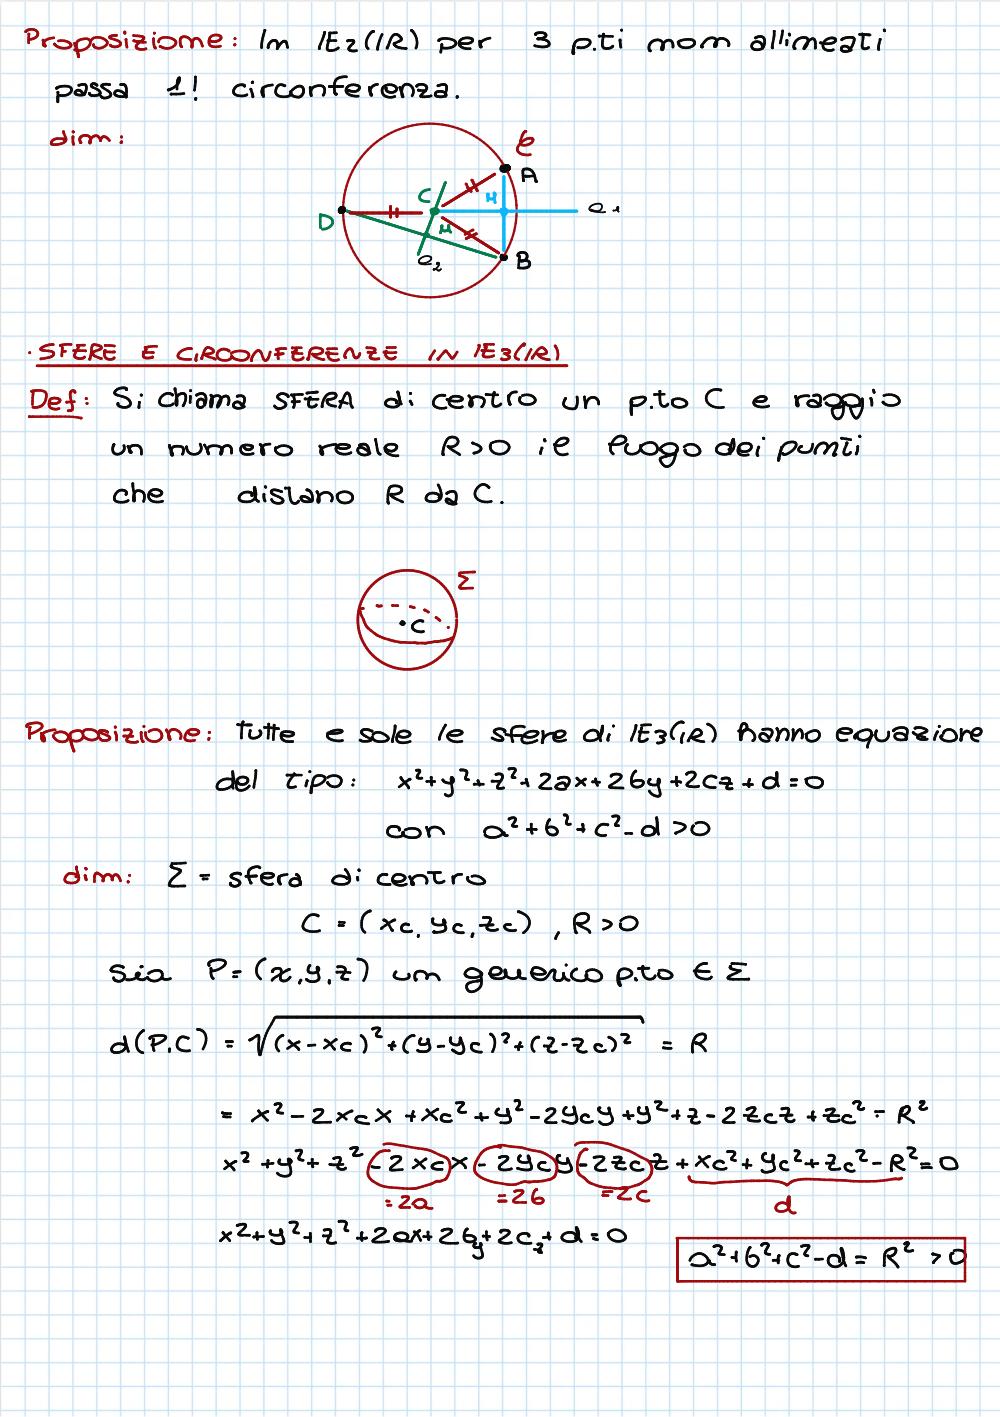 Proposizione: In IE₂(IR) per 3 p.ti non allineati
passa 1! circonferenza.
dim:
C
A
C
M
D
a₁
M
a₂
B
· SFERE E CIRCONFERENZE IN IE₃(IR)
Def: Si chiama SFERA di centro un p.to C e raggio
un numero reale R>0 il luogo dei punti
che distano R da C.
Σ
C
Proposizione: Tutte e sole le sfere di IE₃(IR) hanno equazione
del tipo: x²+y²+z²+2ax+2by+2cz+d=0
con a²+b²+c²-d>0
dim: Σ = sfera di centro
C = (xc, yc, zc) , R>0
Sia P=(x,y,z) un generico p.to ∈ Σ
d(P,C) = √(x-xc)²+(y-yc)²+(z-zc)² = R
= x²-2xcx+xc²+y²-2ycy+y²+z-2zcz+zc² = R²
x²+y²+z²-2xcx-2ycy-2zcz+xc²+yc²+zc²-R²=0
=2a =2b =2c d
x²+y²+z²+2ax+2by+2cz+d=0
a²+b²+c²-d=R²>0